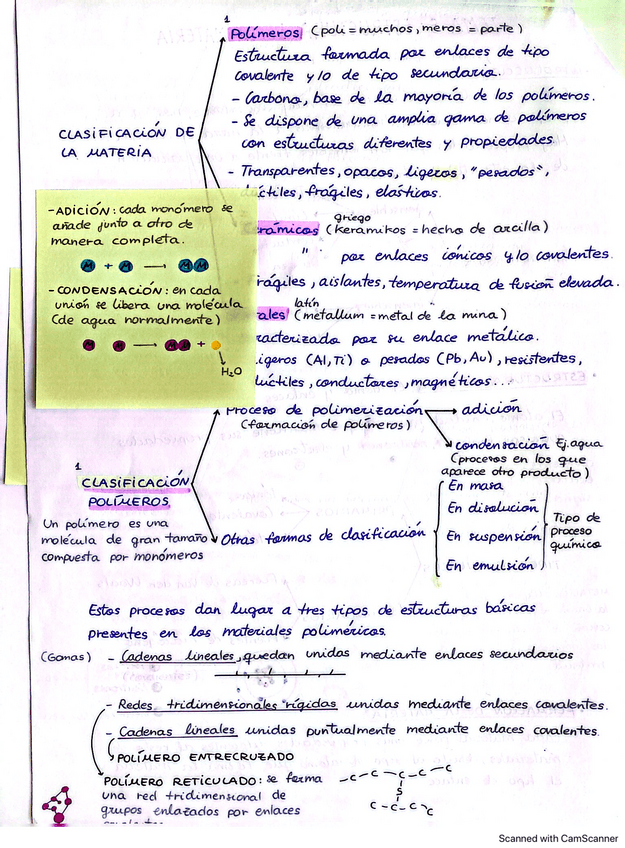 1
Polímeros (poli = muchos, meros = parte)
Estructura formada por enlaces de tipo
covalente y/o de tipo secundario.
- Carbono, base de la mayoría de los polímeros.
- Se dispone de una amplia gama de polímeros
con estructuras diferentes y propiedades
- Transparentes, opacos, ligeros, "pesados",
dúctiles, frágiles, elásticos.
CLASIFICACIÓN DE
LA MATERIA
griego
erámicos (keramikos = hecho de arcilla)
" por enlaces iónicos y/o covalentes.
rágiles, aislantes, temperatura de fusión elevada.
latín
ales (metallum = metal de la mina)
racterizado por su enlace metálico.
igeros (Al, Ti) o pesados (Pb, Au), resistentes,
dúctiles, conductores, magnéticos...
- ADICIÓN: cada monómero se
añade junto a otro de
manera completa.
M + M → MM
- CONDENSACIÓN: en cada
unión se libera una molécula
(de agua normalmente)
M M → MM +
H2O
Proceso de polimerización → adición
(formación de polímeros)
condensación Ej. agua
(procesos en los que
aparece otro producto)
1
CLASIFICACIÓN
POLÍMEROS
Un polímero es una
molécula de gran tamaño
compuesta por monómeros
Otras formas de clasificación
En masa
En disolución
En suspensión
En emulsión
Tipo de
proceso
químico
Estos procesos dan lugar a tres tipos de estructuras básicas
presentes en los materiales poliméricos.
(Gomas) - Cadenas lineales, quedan unidas mediante enlaces secundarios
- Redes tridimensionales rígidas unidas mediante enlaces covalentes.
- Cadenas lineales unidas puntualmente mediante enlaces covalentes.
POLÍMERO ENTRECRUZADO
POLÍMERO RETICULADO: se forma
una red tridimensional de
grupos enlazados por enlaces
-C-C-C-C-C
S
C-C-C-C
Scanned with CamScanner